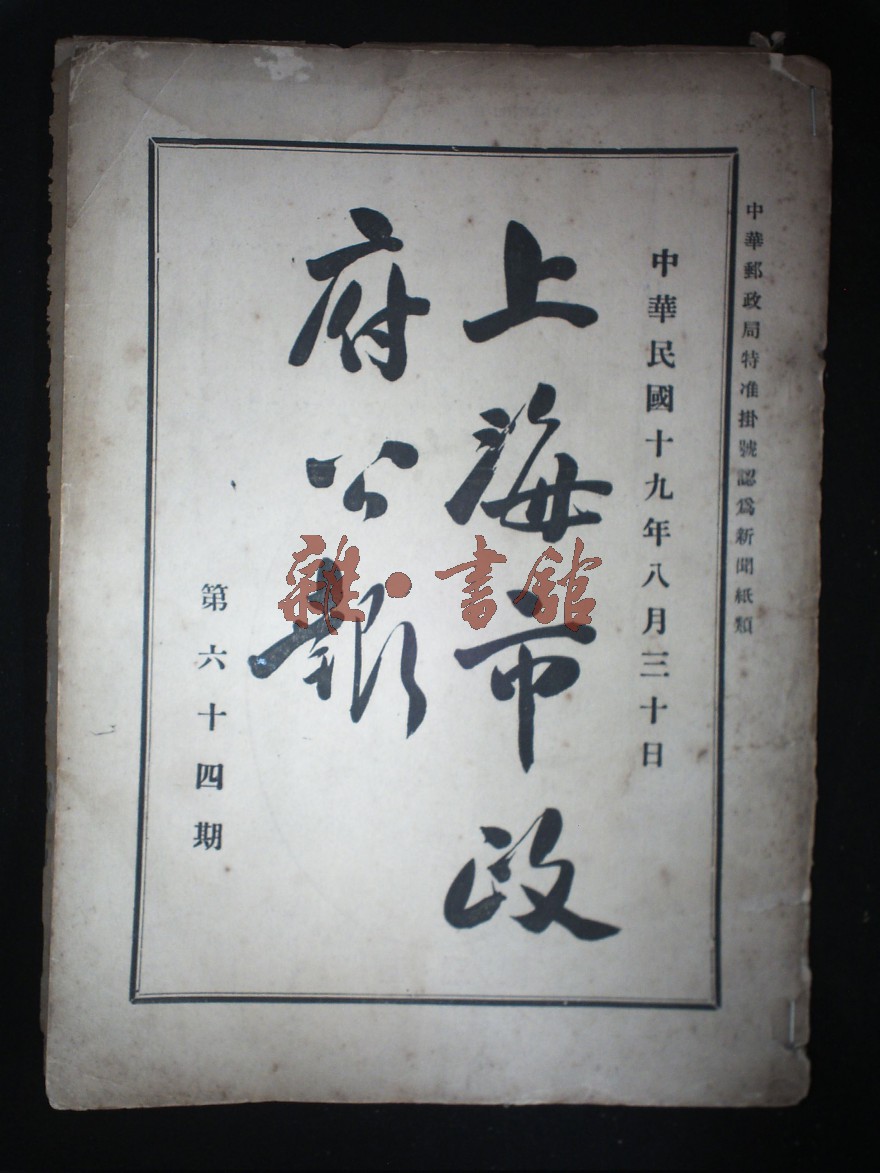 中華郵政局特准掛號認爲新聞紙類
中華民國十九年八月三十日
上海市政
府公報
第六十四期
雜·書館